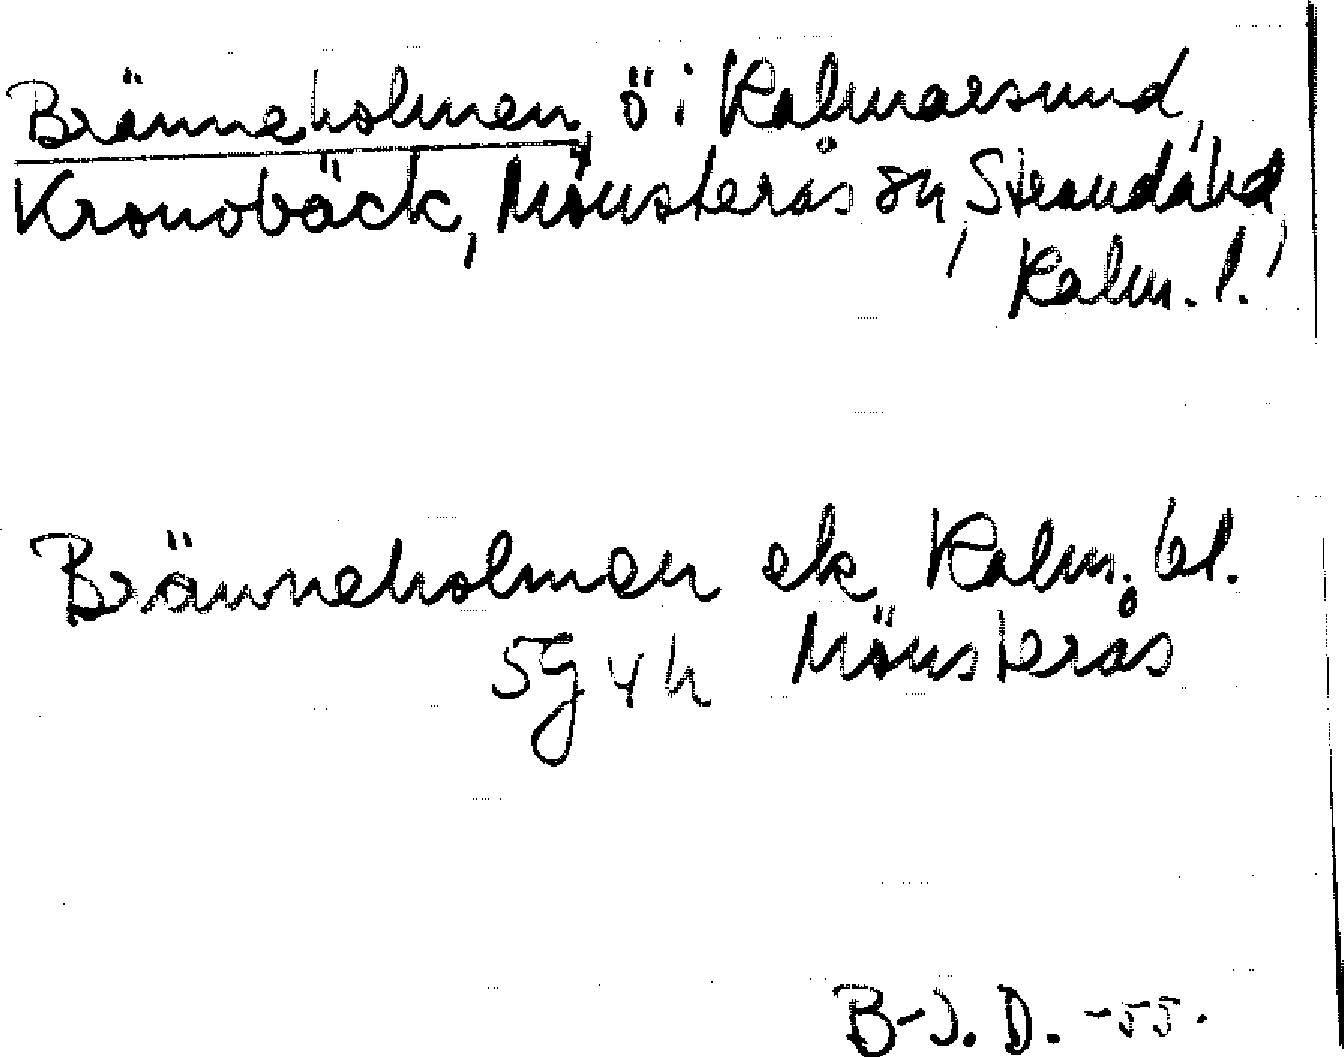 Bränneholmen, ö i Kalmarsund,
Kronobäck, Mönsterås sn, Stranda hd,
Kalm. l.
Bränneholmen ek Kalm. bl.
5g 4h Mönsterås
B-J. D. -55.